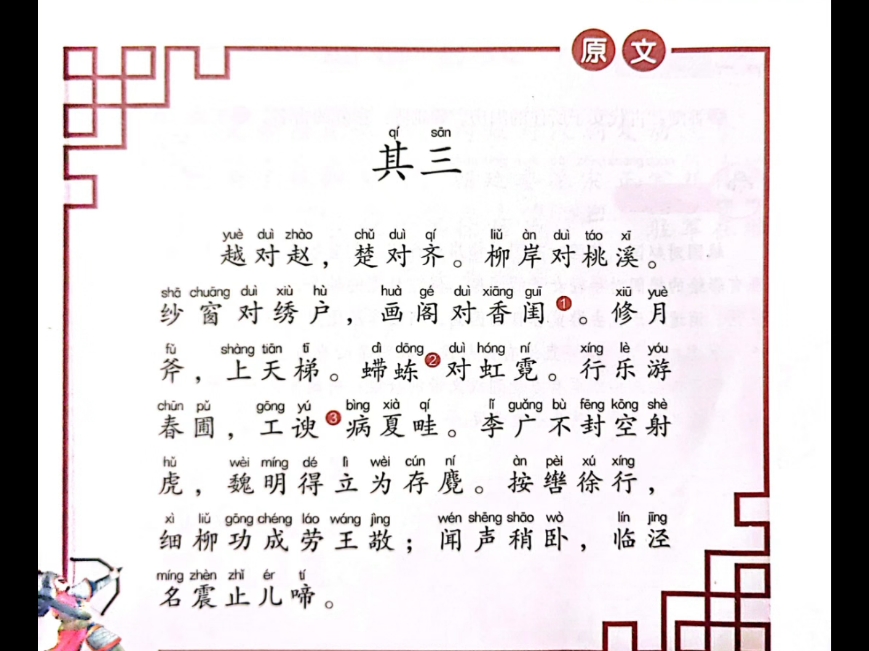 原文
qí sān
其三
yuè duì zhào chǔ duì qí liǔ àn duì táo xī
越对赵，楚对齐。柳岸对桃溪。
shā chuāng duì xiù hù huà gé duì xiāng guī xiū yuè
纱窗对绣户，画阁对香闺①。修月
fǔ shàng tiān tī dì dōng duì hóng ní xíng lè yóu
斧，上天梯。䗖蝀②对虹霓。行乐游
chūn pǔ gōng yú bìng xià qí lǐ guǎng bù fēng kōng shè
春圃，工谀③病夏畦。李广不封空射
hǔ wèi míng dé lì wèi cún ní àn pèi xú xíng
虎，魏明得立为存麑。按辔徐行，
xì liǔ gōng chéng láo wáng jìng wén shēng shāo wò lín jīng
细柳功成劳王敬；闻声稍卧，临泾
míng zhèn zhǐ ér tí
名震止儿啼。